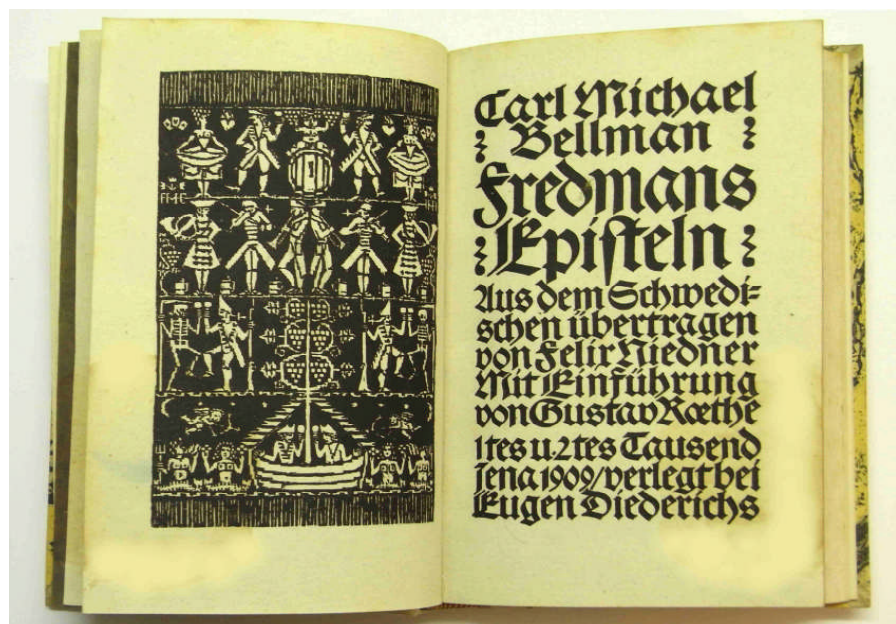 Carl Michael
Bellman
Fredmans
Epiſteln
Aus dem Schwedi-
schen übertragen
von Felix Niedner
Mit Einführung
von Gustav Rœthe
1tes u. 2tes Tausend
Jena 1909/verlegt bei
Eugen Diederichs